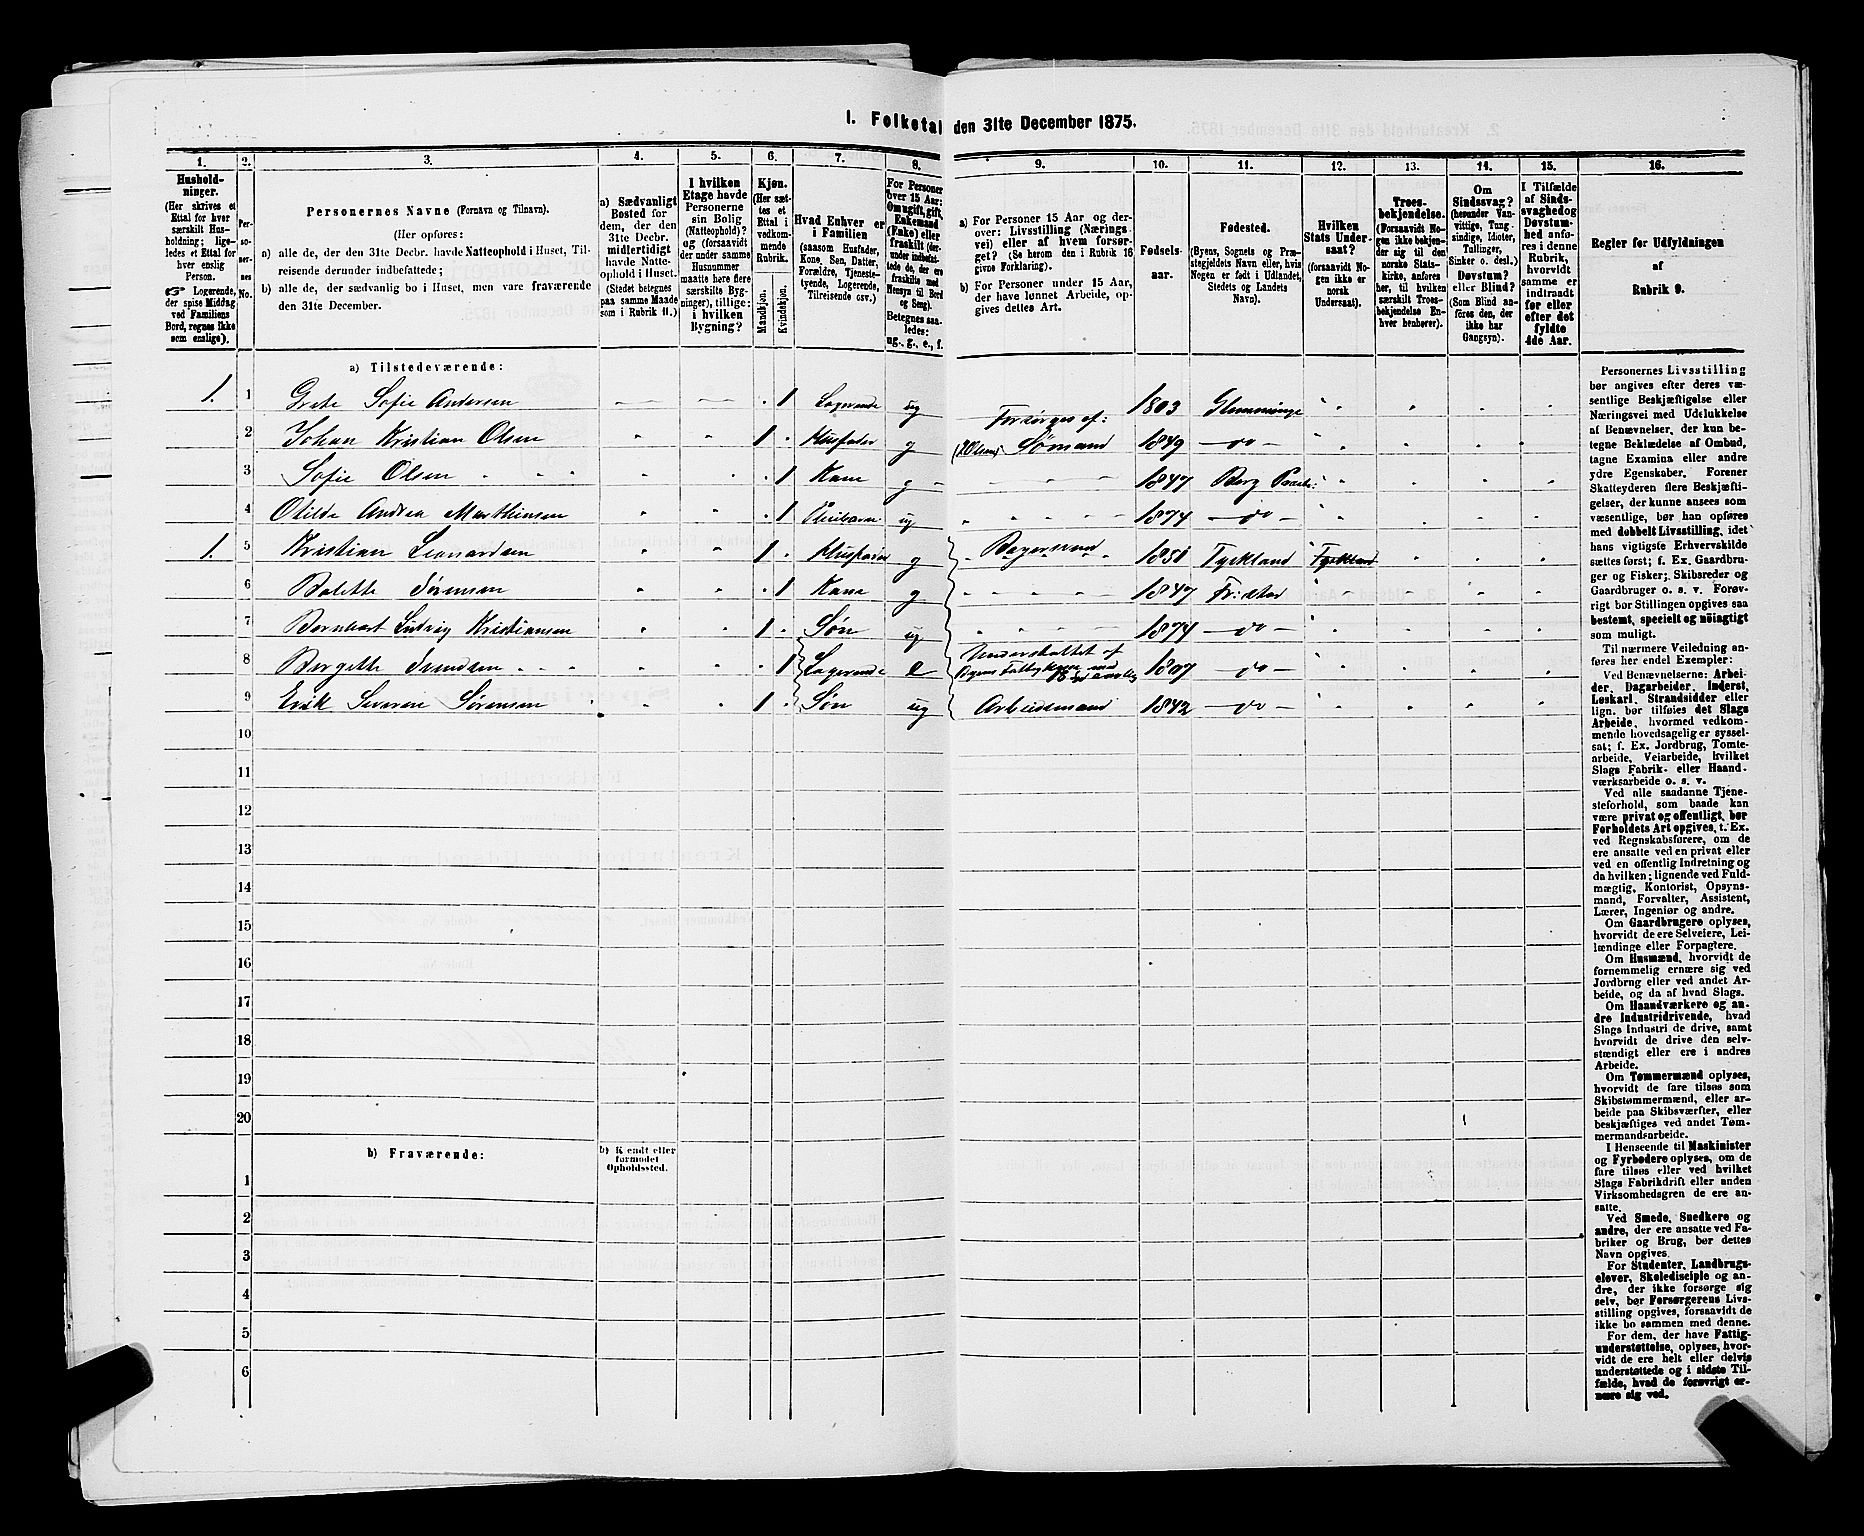 1. Folketal den 31te December 1875.
1. 2. 3. 4. 5. 6. 7. 8. 9. 10. 11. 12. 13. 14. 15. 16.
Hushold-
ninger.
(Her skrives et
Ettal for hver
særskilt Hus-
holdning; lige-
ledes et Ettal for
hver enslig
Person.
Logerende,
der spise Middag
ved Familiens
Bord, regnes ikke
som enslige).
Per-
so-
ner-
nes
No.
Personernes Navne (Fornavn og Tilnavn).
(Her opføres:
a) alle de, der den 31te Decbr. havde Natteophold i Huset, Til-
reisende derunder indbefattede;
b) alle de, der sædvanlig bo i Huset, men vare fraværende
den 31te December.
a) Sædvanligt
Bosted for
dem, der den
31te Decbr.
midlertidigt
havde Natte-
ophold i Huset.
(Stedet betegnes
paa samme Maade
som i Rubrik 11.)
I hvilken
Etage havde
Personerne
sin Bolig
(Natteophold)?
og (forsaavidt
der under samme
Husnummer
maatte høre flere
særskilte Byg-
ninger), tillige:
i hvilken
Bygning?
Kjøn.
(Her sæt-
tes et
Ettal i
vedkom-
mende
Rubrik.
Mandkjøn.
Kvindekjøn.
Hvad Enhver er
i Familien
(saasom Husfader,
Kone, Søn, Datter,
Forældre, Tjeneste-
tyende, Logerende,
Tilreisende csv.)
For Personer
over 15 Aar:
Om ugift, gift,
Enkemand
(Enke) eller
fraskilt (der-
under indbefat-
tede de, der ere
fraskilte med
Hensyn til Bord
og Seng).
Betegnes saa-
ledes:
ug., g., e., f.
a) For Personer 15 Aar og der-
over: Livsstilling (Nærings-
vei) eller af hvem forsør-
get? (Se herom den i Rubrik 16
givne Forklaring).
b) For Personer under 15 Aar,
der have lønnet Arbeide, op-
gives dettes Art.
Fødsels-
aar.
Fødested.
(Byens, Sognets og Præ-
stegjeldets Navn eller, hvis
Nogen er født i Udlandet,
Stedets og Landets
Navn).
Hvilken
Stats Under-
saat?
(forsaavidt No-
gen ikke er
norsk
Undersaat).
Troes-
bekjendelse.
(Forsaavidt No-
gen ikke bekjen-
der sig til den
norske Stats-
kirke, anføres
her, til hvilken
særskilt Troes-
bekjendelse En-
hver henhører).
Om
Sindssvag?
(herunder Van-
vittige, Tung-
sindige, Idioter,
Tullinger,
Sinker o. desl.)
Døvstum?
eller Blind?
(Som Blind an-
føres den, der
ikke har
Gangsyn).
I Tilfælde
af Sinds-
svaghed og
Døvstum-
hed anfø-
res i denne
Rubrik,
hvorvidt
samme er
indtraadt
før eller
efter det
fyldte
4de Aar.
Regler for Udfyldningen
af
Rubrik 9.
a) Tilstedeværende:
1. 1 Grete Sofie Andersen 1 Logerende ug Forsørges af: 1803 Glemminge
2 Johan Kristian Olsen 1 Husfader g (2 Olsen) Sømand 1849 —do—
3 Sofie Olsen 1 Kone g 1847 Berg
4 Otilde Andrea Marthinsen 1 Pleiebarn ug 1874 —do—
1. 5 Kristian Leonardsen 1 Husfader g Bagersvend 1851 Tyskland Tyskland
6 Bolette Sørensen 1 Kone g 1847 Fr:stad
7 Bernhart Ludvig Kristiansen 1 Søn ug 1874 —do—
8 Bergitte Svendsen 1 Logerende e Understøttet af 1807 —do—
9 Erik Severin Sørensen 1 Søn ug Arbeidsmand 1842 —do—
10
11
12
13
14
15
16
17
18
19
20
b) Fraværende:
b) Kjendt eller
formodet
Opholdssted.
1
2
3
4
5
6
Personernes Livsstilling
bør angives efter deres væ-
sentlige Beskjæftigelse eller
Næringsvei med Udelukkelse
af Benævnelser, der kun be-
tegne Beklædelse af Ombud,
tagne Examina eller andre
ydre Egenskaber. Forener
Skatteyderen flere Beskjæfti-
gelser, der kunne ansees som
væsentlige, bør han opføres
med dobbelt Livsstilling, idet
hans vigtigste Erhvervskilde
sættes først; f. Ex. Gaardbru-
ger og Fisker; Skibsreder og
Gaardbruger o. s. v. Forøv-
rigt bør Stillingen opgives saa
bestemt, specielt og nöiagtigt
som muligt.
Til nærmere Veiledning an-
føres her endel Exempler:
Ved Benævnelserne: Arbei-
der, Dagarbeider, Inderst,
Løskarl, Strandsidder eller
lign. bør tilføies det Slags
Arbeide, hvormed vedkom-
mende hovedsagelig er syssel-
sat; f. Ex. Jordbrug, Tomte-
arbeide, Veiarbeide, hvilket
Slags Fabrik- eller Haand-
værksarbeide o. s. v.
Ved alle saadanne Tjene-
steforhold, som baade kan
være privat og offentligt, bør
Forholdets Art opgives, t. Ex.
ved Regnskabsførere, om de
ere ansatte ved en privat eller
ved en offentlig Indretning og
da hvilken; lignende ved Fuld-
mægtig, Kontorist, Opsyns-
mand, Forvalter, Assistent,
Lærer, Ingeniør og andre.
Om Gaardbrugere oplyses,
hvorvidt de ere Selveiere, Lei-
lændinge eller Forpagtere.
Om Husmænd, hvorvidt de
fornemmelig ernære sig ved
Jordbrug eller ved andet Ar-
beide, og da af hvad Slags.
Om Haandværkere og an-
dre Industridrivende, hvad
Slags Industri de drive, samt
hvorvidt de drive den selv-
stændigt eller ere i andres
Arbeide.
Om Tømmermænd oplyses,
hvorvidt de fare tilsøs som
Skibstømmermænd, eller ar-
beide paa Skibsværfter, eller
beskjæftiges ved andet Tøm-
mermandsarbeide.
I Henseende til Maskinister
og Fyrbødere oplyses, om de
fare tilsøs eller ved hvilket
Slags Fabrikdrift eller anden
Virksomhedsgren de ere an-
satte.
Ved Smede, Snedkere og
andre, der ere ansatte ved Fa-
briker og Brug, bør dettes
Navn opgives.
For Studenter, Landbrugs-
elever, Skoledisciple og an-
dre, der ikke forsørge sig
selv, bør Forsørgerens Livs-
stilling opgives, forsaavidt de
ikke bo sammen med denne.
For dem, der have Fattig-
understøttelse, oplyses, hvor-
vidt de ere helt eller delvis
understøttede og i sidste Til-
fælde, hvad de forøvrigt er-
nære sig ved.